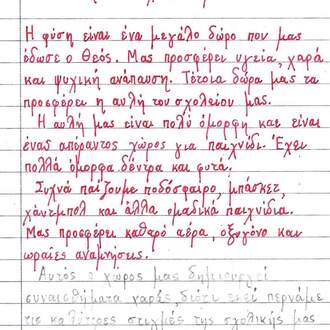 Η φύση είναι ένα μεγάλο δώρο που μας
έδωσε ο Θεός. Μας προσφέρει υγεία, χαρά
και ψυχική ανάπαυση. Τέτοια δώρα μας τα
προσφέρει η αυλή του σχολείου μας.
Η αυλή μας είναι πολύ όμορφη και είναι
ένας απέραντος χώρος για παιχνίδι. Έχει
πολλά όμορφα δέντρα και φυτά.
Συχνά παίζουμε ποδόσφαιρο, μπάσκετ,
χάντμπολ και άλλα ομαδικά παιχνίδια.
Μας προσφέρει καθαρό αέρα, οξυγόνο και
ωραίες αναμνήσεις.
Αυτός ο χώρος μας δημιουργεί
συναισθήματα χαράς, διότι εκεί περνάμε
τις καλύτερες στιγμές της σχολικής μας